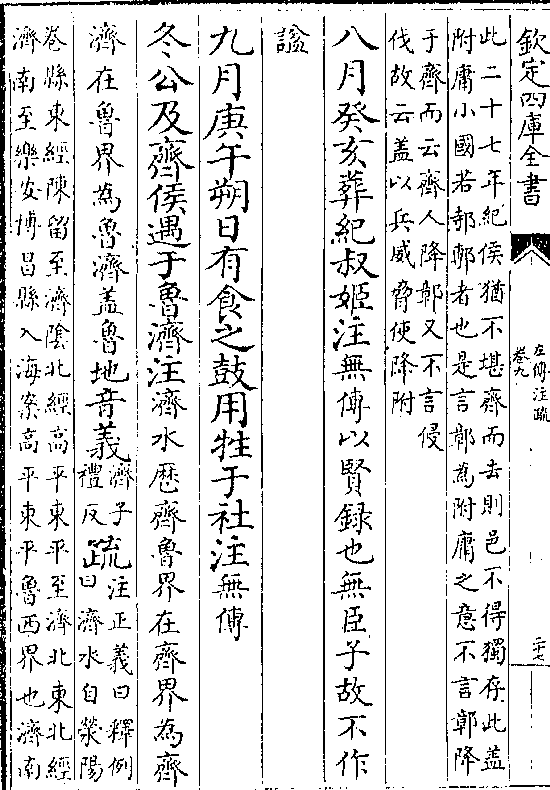 欽定四庫全書
左傳注疏
卷九
二十七
此二十七年紀侯猶不堪齊而去則邑不得獨存此蓋
附庸小國若邿鄅者也是言鄣為附庸之意不言鄣降
于齊而云齊人降鄣又不言侵
伐故云盖以兵威脅使降附
八月癸亥葬紀叔姬注無傳以賢録也無臣子故不作
諡
九月庚午朔日有食之鼓用牲于社注無傳
冬公及齊侯遇于魯濟注濟水歴齊魯界在齊界為齊
濟在魯界為魯濟盖魯地音義濟子
禮反疏注正義曰釋例
曰濟水自滎陽
卷縣東經陳留至濟陰北經高平東平至濟北東北經
濟南至樂安博昌縣入海案高平東平魯西界也濟南